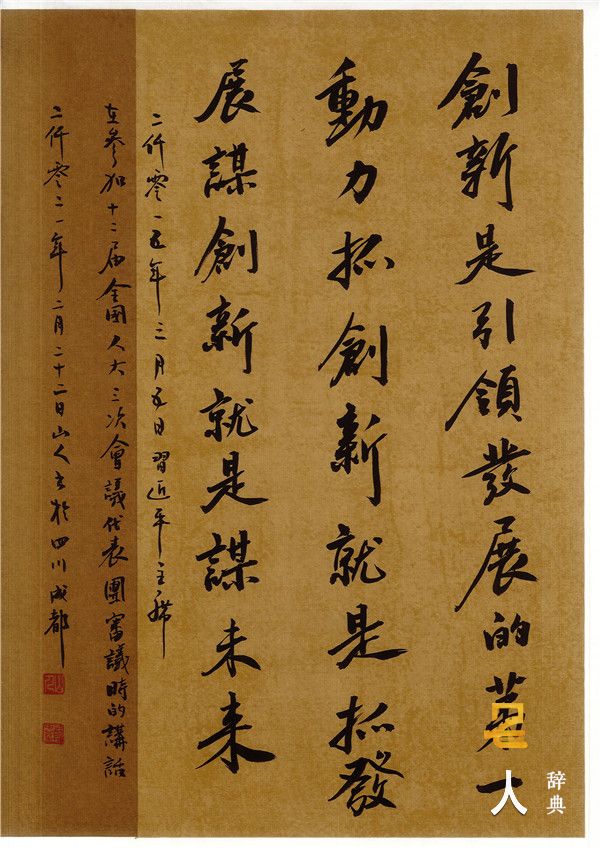 創新是引領發展的第一
動力抓創新就是抓發
展謀創新就是謀未来
二仟零一五年三月五日習近平主席
在參加十二届全國人大三次會議代表團審議時的講話
二仟零二一年二月二十二日山人書於四川成都
人
辞典